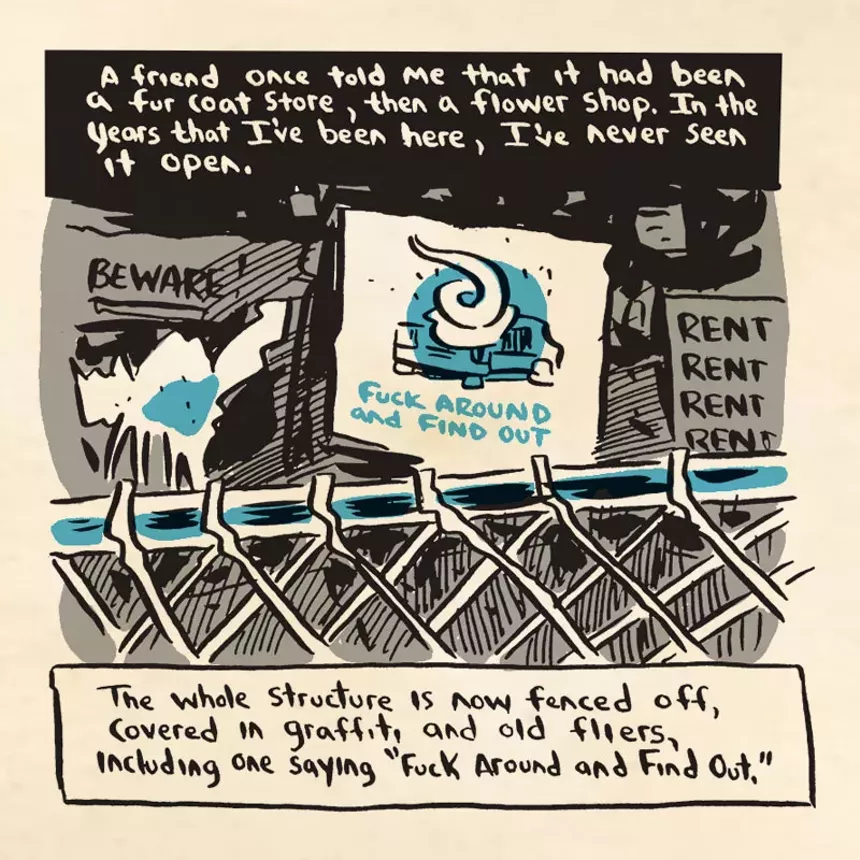 A friend once told me that it had been
a fur coat store, then a flower shop. In the
years that I've been here, I've never seen
it open.
BEWARE!
RENT
RENT
RENT
RENT
FUCK AROUND
and FIND OUT
The whole structure is now fenced off,
covered in graffiti, and old fliers,
including one saying "Fuck Around and Find Out."